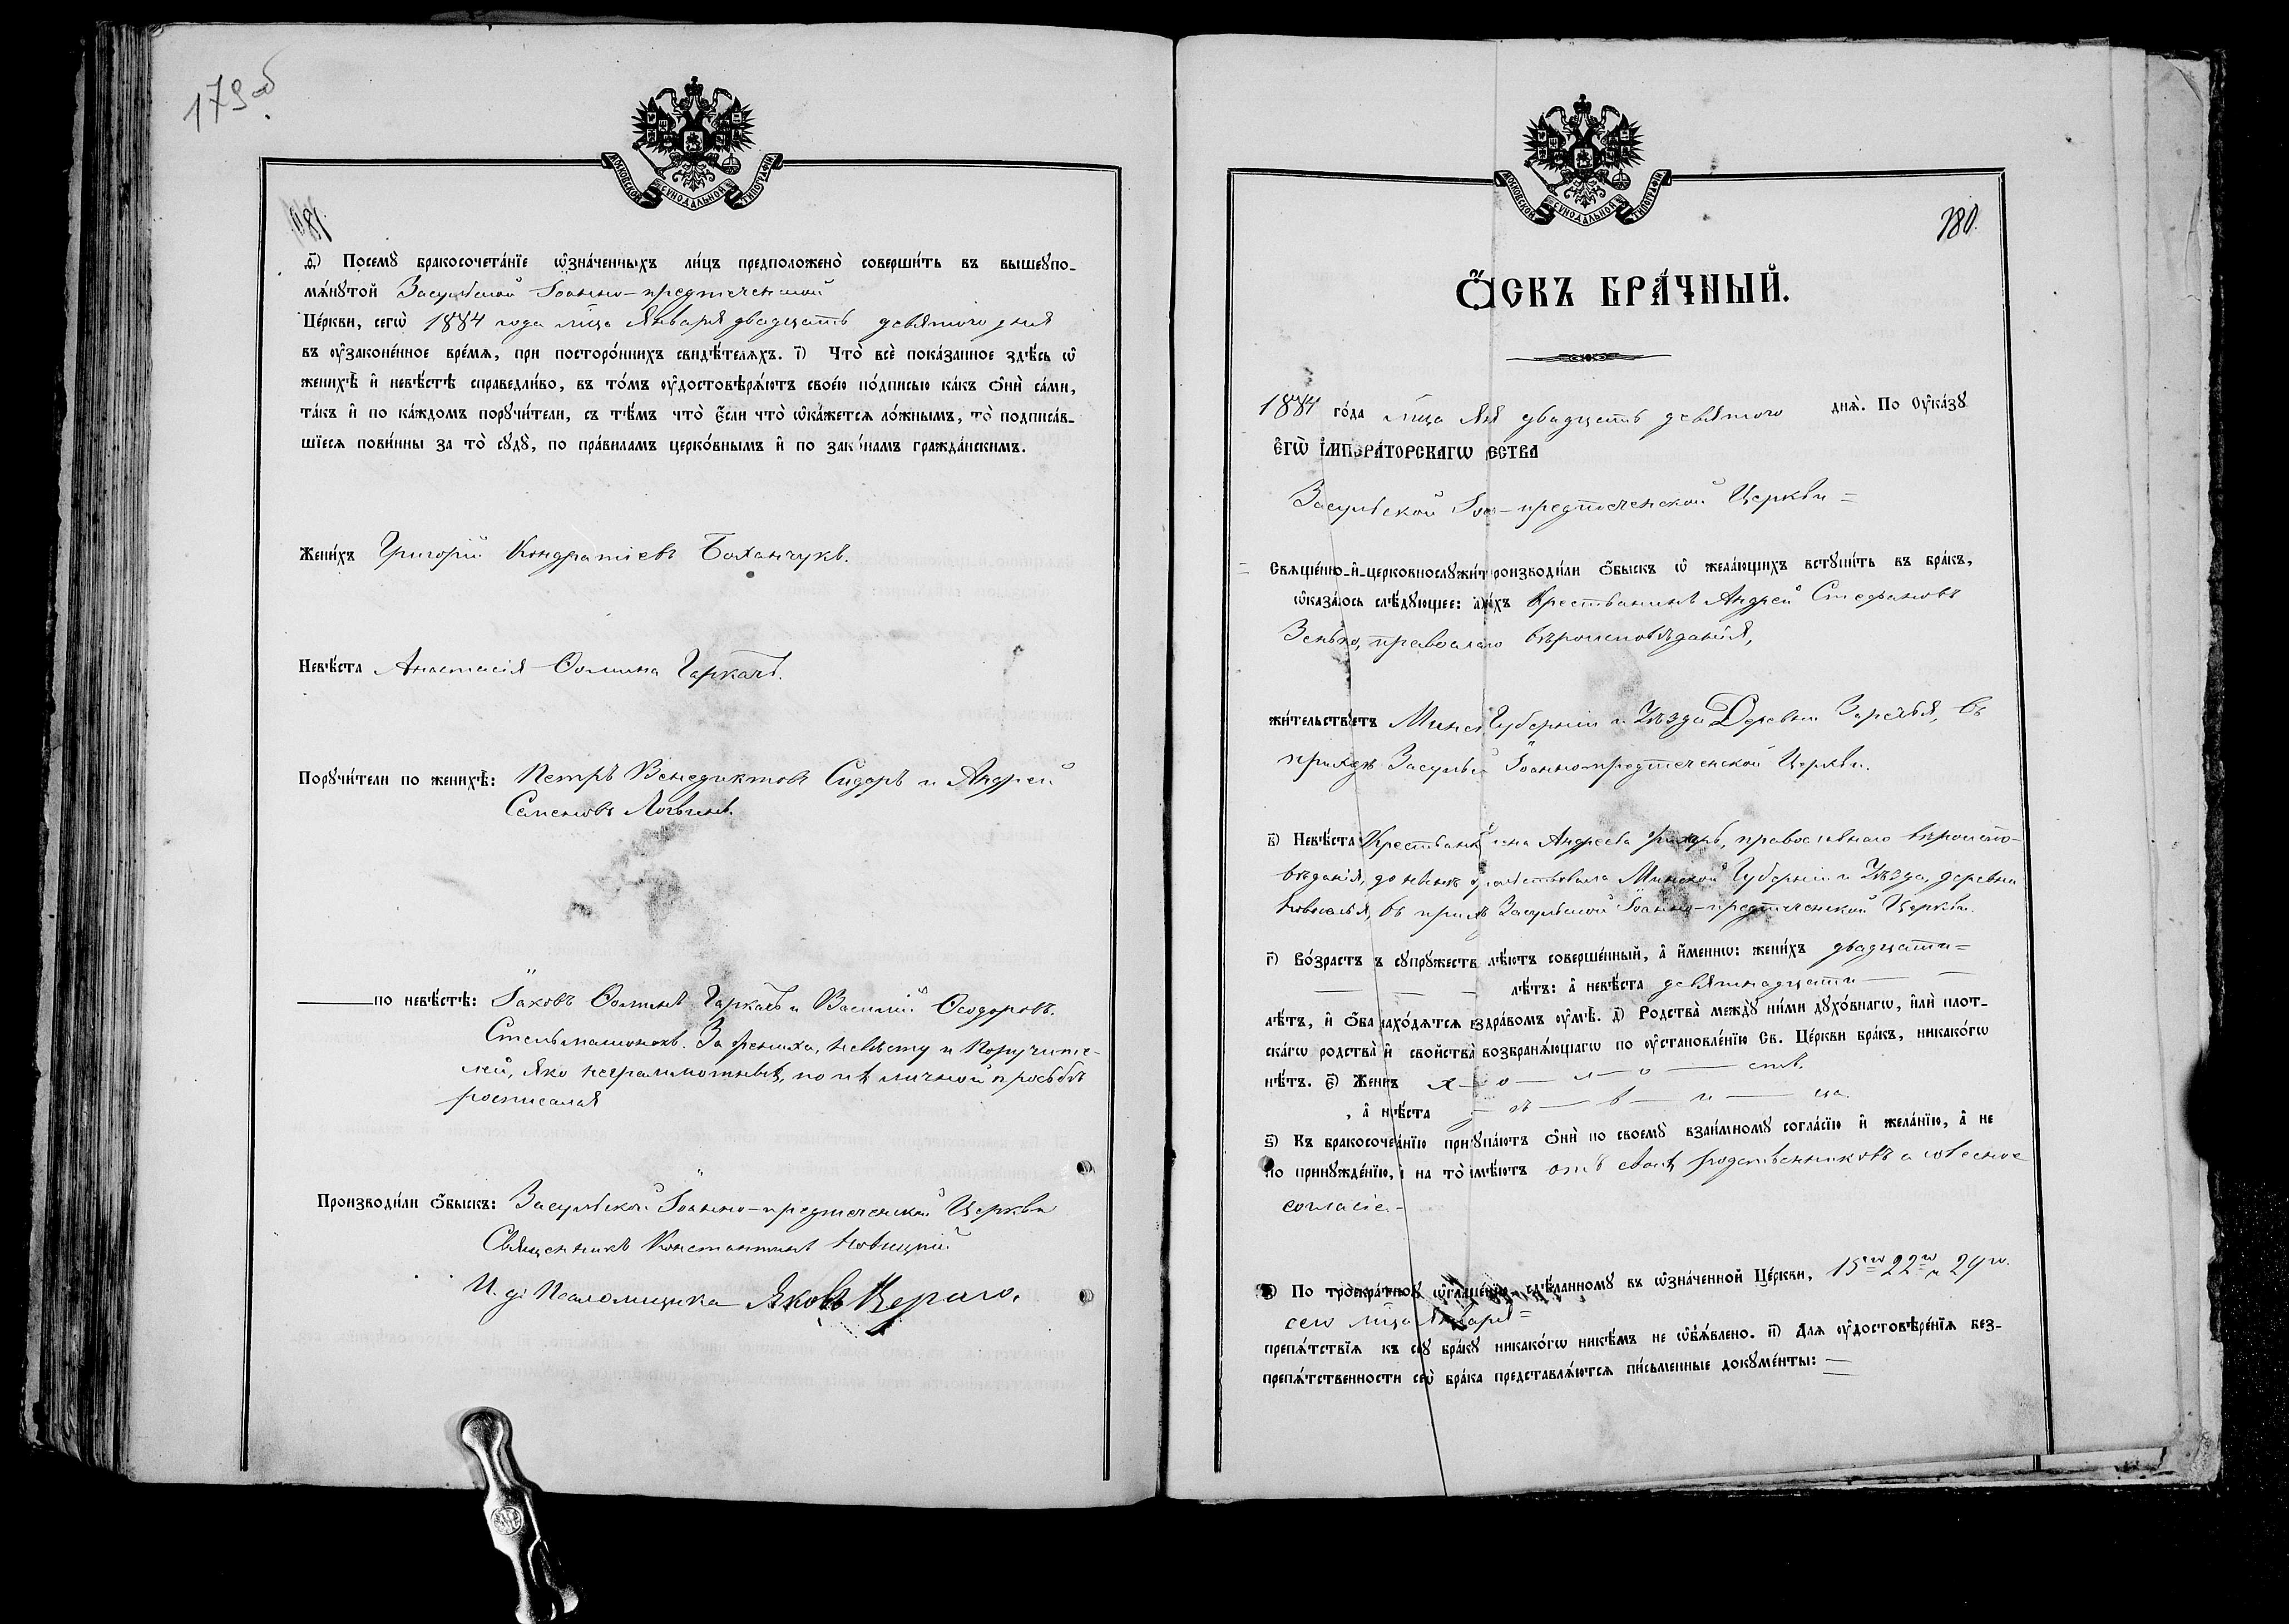 179 об
МОСКОВСКОЙ СѴНОДАЛЬНОЙ ТИПОГРАФІИ
181
Ѳ҃) Посемꙋ бракосочета́нїе ѡ҆зна́ченныхъ ли́цъ предположено̀ соверши́ть въ вышеꙋпо-
мѧ́нꙋтой Засульской Іоанно-предтеченской
Це́ркви, сегѡ̀ 1884 года мѣсца Января двадцать девятого дня
въ ᲂу҆законе́нное вре́мѧ, при посторо́ннихъ свидѣ́телѧхъ. І҃) Что̀ всѐ пока́занное здѣ́сь ѡ҆
женихѣ̀ и҆ невѣ́стѣ справедли́во, въ то́мъ ᲂу҆достовѣрѧ́ютъ свое́ю по́дписью ка́къ ѻ҆нѝ са́ми,
та́къ и҆ по ка́ждомъ порꙋчи́тели, съ тѣ́мъ что̀ є҆́сли что̀ ѡ҆ка́жетсѧ ло́жнымъ, то̀ подписа́в-
шїесѧ пови́нны за то̀ сꙋдꙋ̀, по пра́виламъ церко́внымъ и҆ по зако́намъ гражда́нскимъ.
Жени́хъ Григорій Кондратіевъ Боханчукъ.
Невѣ́ста Анастасія Ѳомина Гаркачъ.
Порꙋчи́тели по женихѣ̀: Петръ Венедиктовъ Сидоръ и Андрей
Семеновъ Логвинъ.
по невѣ́стѣ: Іаковъ Ѳоминъ Гаркачъ и Василій Ѳеодоровъ
Стельмашонокъ. За жениха, невѣсту и Поручите-
лей, яко неграмотныхъ, по ихъ личной просьбѣ
росписался
Производи́ли ѻ҆́быскъ: Засульской Іоанно-предтеченской Церкви
Священникъ Константинъ Новицкій
И. д. Псаломщика Яковъ
МОСКОВСКОЙ СѴНОДАЛЬНОЙ ТИПОГРАФІИ
180.
Ѻ҆СКЪ БРА́ЧНЫЙ.
1884 го́да мѣсца Янв двадцать девятого днѧ̀. По Оу҆ка́зꙋ
Є҆ГѠ̀ И҆МПЕРА́ТОРСКАГѠ ЕСТВА
Засульской Іоа-предтеченской Церкви =
Свѧще́нно-и҆-церковнослꙋжит роизводи́ли ѻ҆́быскъ ѡ҆ жела́ющихъ встꙋпи́ть въ бра́къ,
ѡ҆каза́лось слѣ́дꙋющее: а҃) и́хъ Крестьянинъ Андрей Стефановъ
Зенько, православнаго вѣроисповѣданія,
жи́тельствꙋетъ Минской Губерніи и Уѣзда Деревни Зарѣчья, въ
приходѣ Засульской Іоанно-предтеченской Церкви.
в҃) Невѣ́ста Крестьянка Андреева православнаго вѣроиспо-
вѣданія, до нынѣ жительствовала Минской Губерніи и Уѣзда, деревни
Новоселья, въ приходѣ Засульской Іоанно-предтеченской Церкви.
г҃) Во́зрастъ ъ сꙋпрꙋжеств и҆мѣ́ютъ соверше́нный, а҆ и҆́меннѡ: жени́хъ двадцати =
лѣ́тъ: а҆ невѣ́ста девятнадцати
лѣ́тъ, и҆ ѻ҆́ба нахо́дѧтсѧ въ здра́вомъ ᲂу҆мѣ̀. д҃) Родства̀ междꙋ̀ ни́ми дꙋхо́внагѡ, и҆лѝ плот-
ска́гѡ родства̀ и҆ сво́йства возбранѧ́ющагѡ по ᲂу҆становле́нїю Св. Це́ркви бра́къ, никако́гѡ
нѣ́тъ. є҃) Жени́хъ х — о — л — о — стъ.
, а҆ невѣ́ста д — ѣ — в — и — ца.
ѕ҃) Къ бракосочета́нїю пристꙋпа́ютъ ѻ҆нѝ по своемꙋ̀ взаи́мномꙋ согла́сїю и҆ жела́нїю, а҆ не
по принꙋжде́нїю, и҆ на то̀ и҆мѣ́ютъ отъ своихъ родственниковъ словесное
согласіе. -
з҃) По троекра́тномꙋ ѡ҆глаше́нїю, сдѣ́ланномꙋ въ ѡ҆зна́ченной Це́ркви, 15го 22го и 29го.
сего мѣсца Января =
препѧ́тствїѧ къ семꙋ̀ бра́кꙋ никако́гѡ никѣ́мъ не ѡ҆б̾ѧ́влено. и҃) Длѧ ᲂу҆достовѣре́нїѧ без-
препѧ́тственности сегѡ̀ бра́ка представлѧ́ютсѧ пи́сьменные докꙋме́нты: —